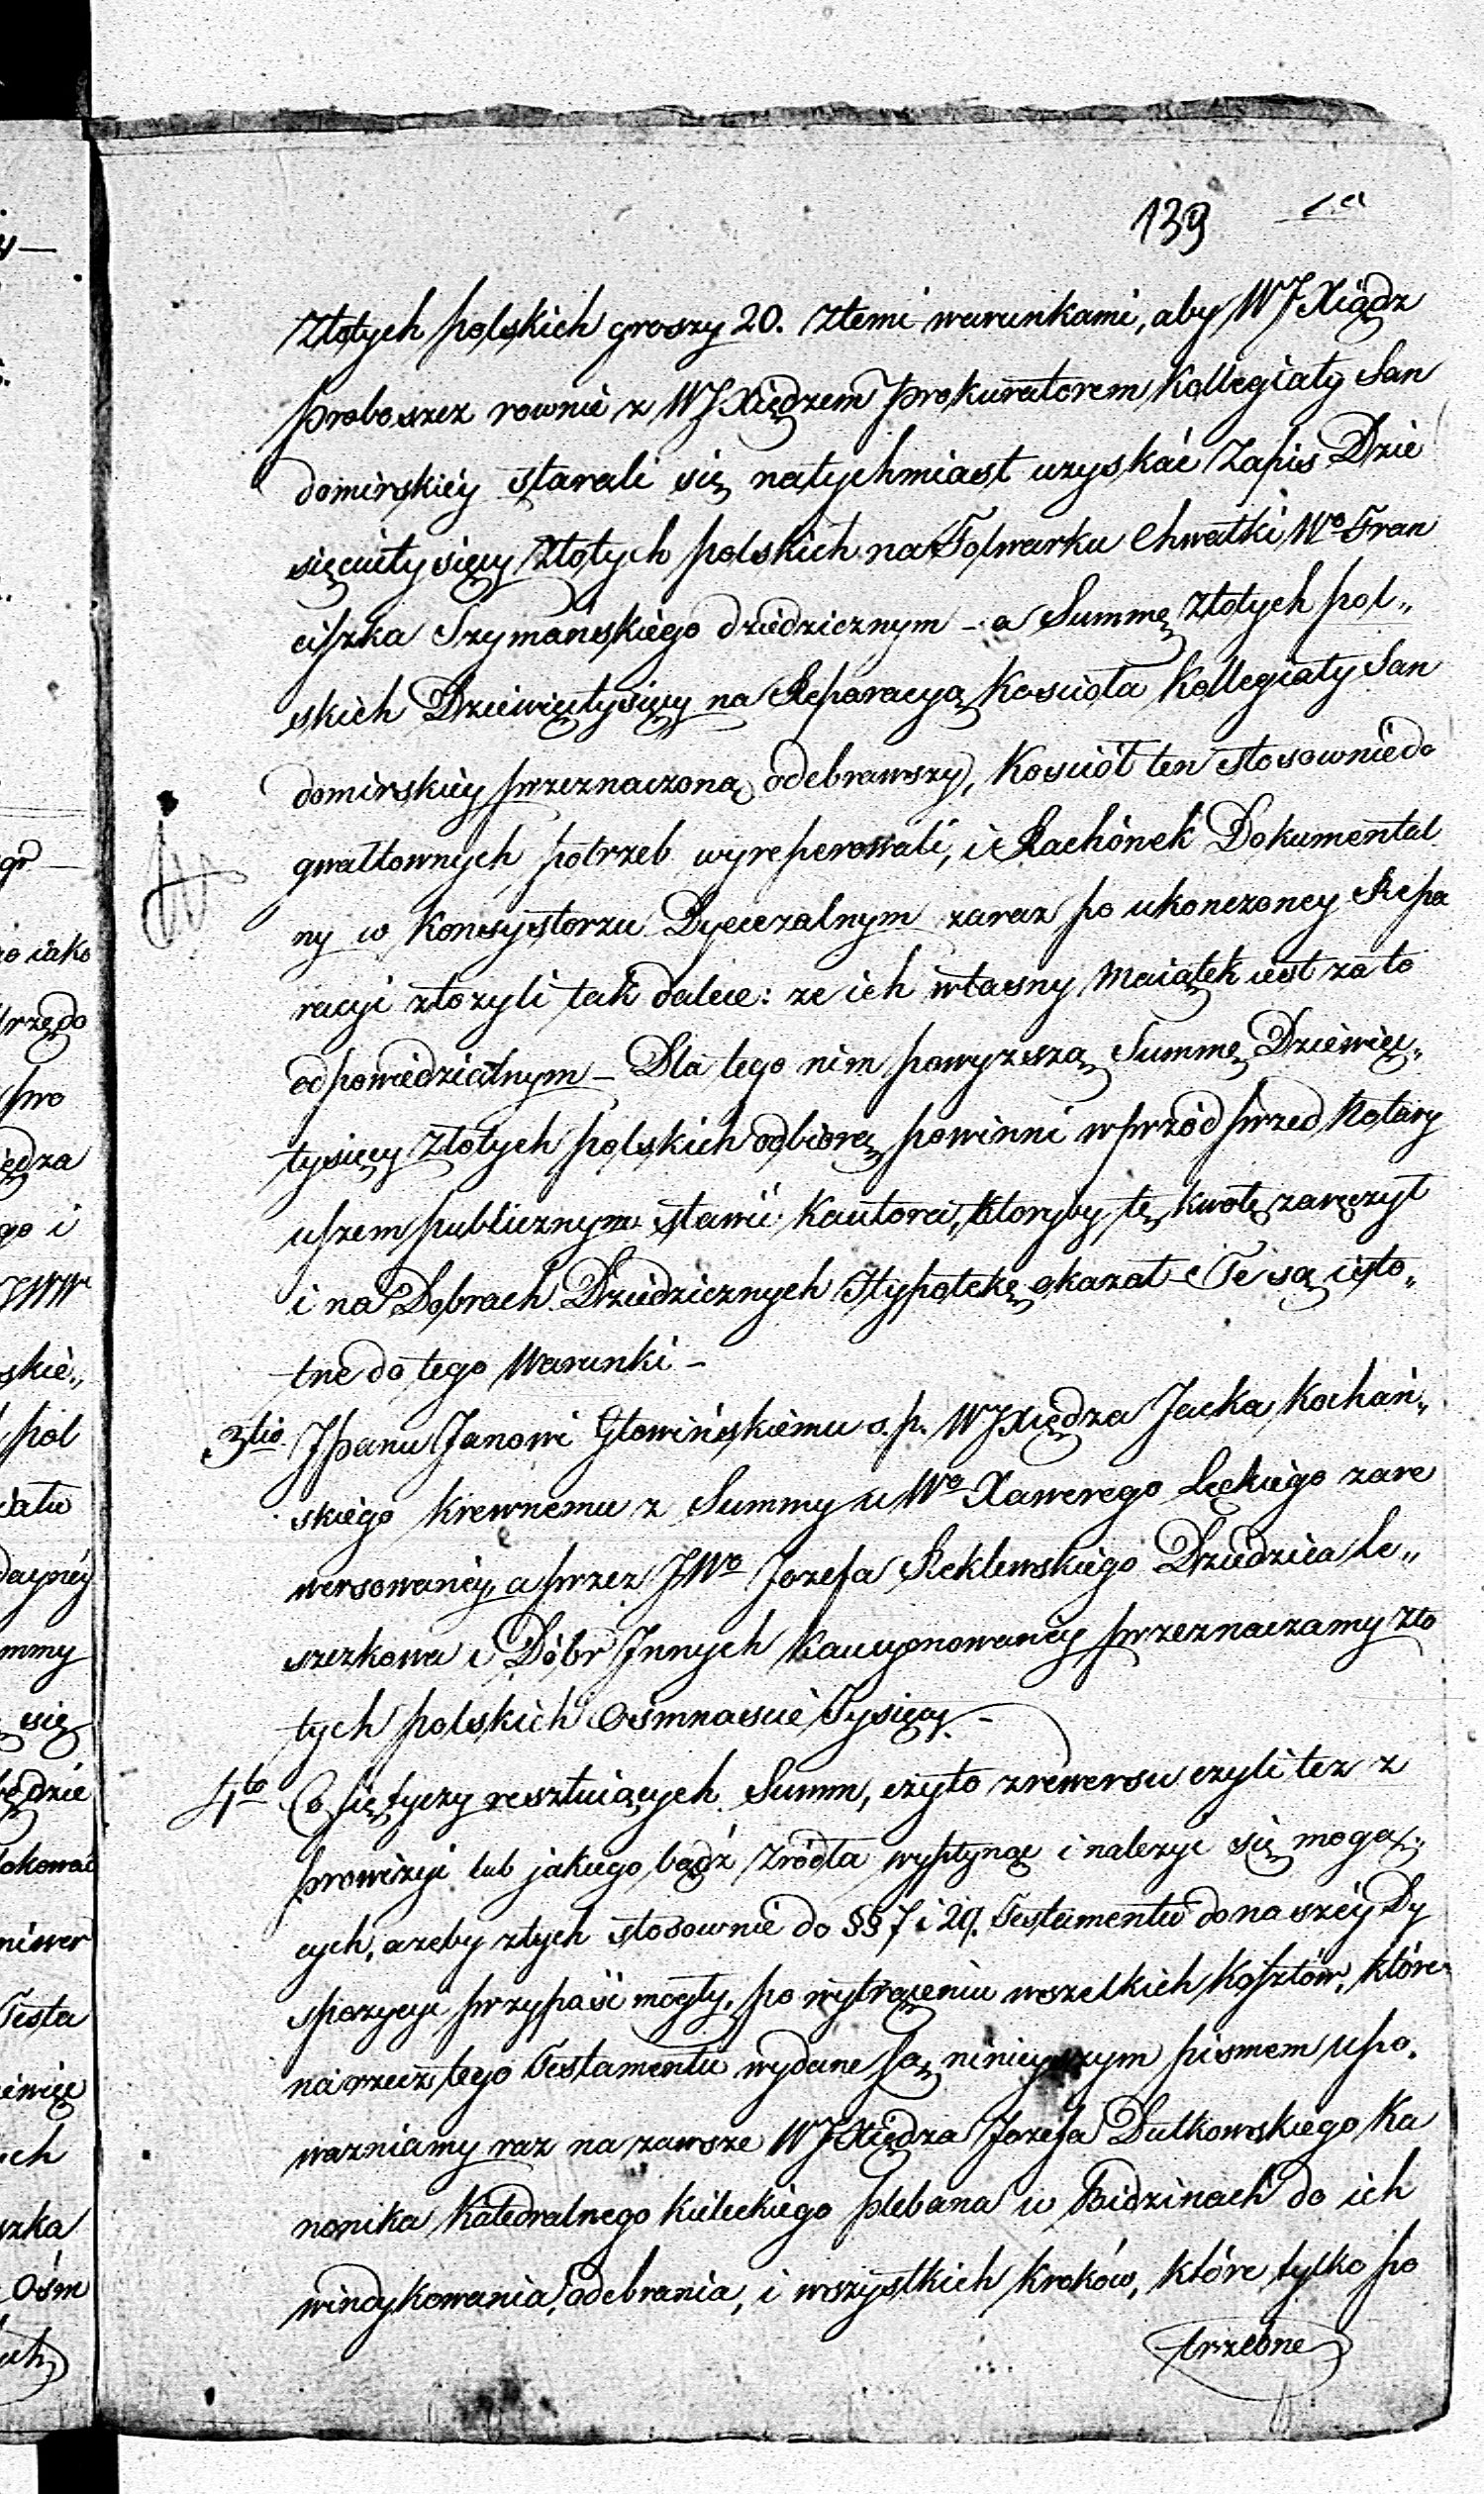 139
złotych polskich groszy 20. ztemi warunkami, aby WJXiądz
proboszcz rownie z WJXiędzem prokuratorem Kollegiaty San
domirskiéy starali się natychmiast uzyskać Zapis Dzie
sięciutysięcy złotych polskich na Folwarku Chwałki Wo Fran
ciszka Szymańskiego dziedzicznym – a Summę złotych pol„
skich Dziewięćtysięcy na Reparacyą Kościoła Kollegiaty San
domirskiéy przeznaczoną odebrawszy, Kościół ten stosownie do
gwałtownych potrzeb wyreperowali, i Rachónek Dokumental
ny w Konsystorzu Dyecezalnym zaraz po ukonczoney Repa
racyi złozyli tak dalece: ze ich własny Maiątek iest za to
odpowiedzialnym – Dla tego nim powyzszą Summę Dziewięć„
tysięcy złotych polskich odbiorą powinni wprzód przed Notary
uszem publicznym stawić Kautora, ktoryby tę kwotę zaręczył
i na Dobrach Dziedzicznych Hypotekę okazał. Te są isto„
tne do tego Warunki –
3tio JPanu Janowi Głowińskiemu s.p. WJXiędza Jacka Kochań„
skiego krewnemu z Summy u Wo Xawerego Łęckiego zare
wersowanéy, a przez JWo Jozefa Reklewskiego Dziedzica Le„
szczkowa i Dóbr Innych kaucyonowanéy przeznaczamy zło
tych polskich Osmnaście Tysięcy. –
4to Co się tyczy resztuiących Summ, czyto z rewersu czyli tez z
prowizyi lub jakiego bądź źródła wypłynąć i nalezyć się mogą„
cych, azeby ztych stosownie do §§ 7 i 29. Testamentu do naszéy Dy
spozycyi przypaść mogły, po wytrąceniu wszelkich Kosztów, które
na rzecz tego Testamentu wydane są, ninieyszym pismem upo.
wazniamy raz na zawsze WJXiędza Jozefa Dutkowskiego Ka
nonika Katedralnego Kieleckiego plebana w Bidzinach do ich
windykowania, odebrania, i wszystkich Kroków, które tylko po
trzebne